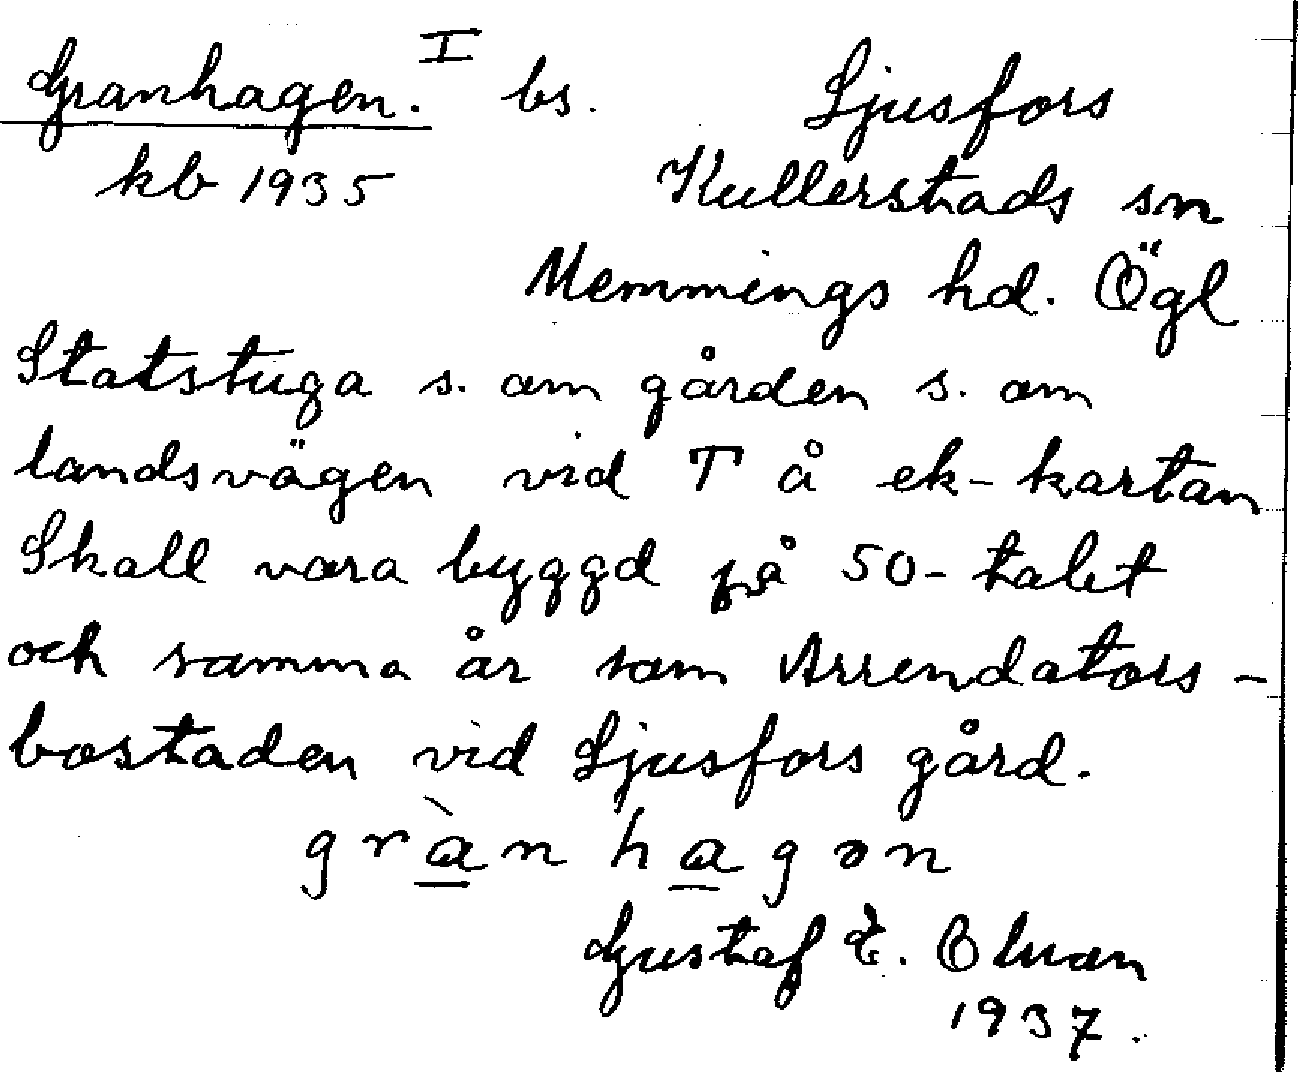 Granhagen. I bs. Ljusfors
kb 1935 Kullerstads sn
Memmings hd. Ögl
Statstuga s. om gården s. om
landsvägen vid T å ek-kartan
Skall vara byggd på 50-talet
och samma år som Arrendators-
bostaden vid Ljusfors gård.
gràn hagən
Gustaf E.
1937.